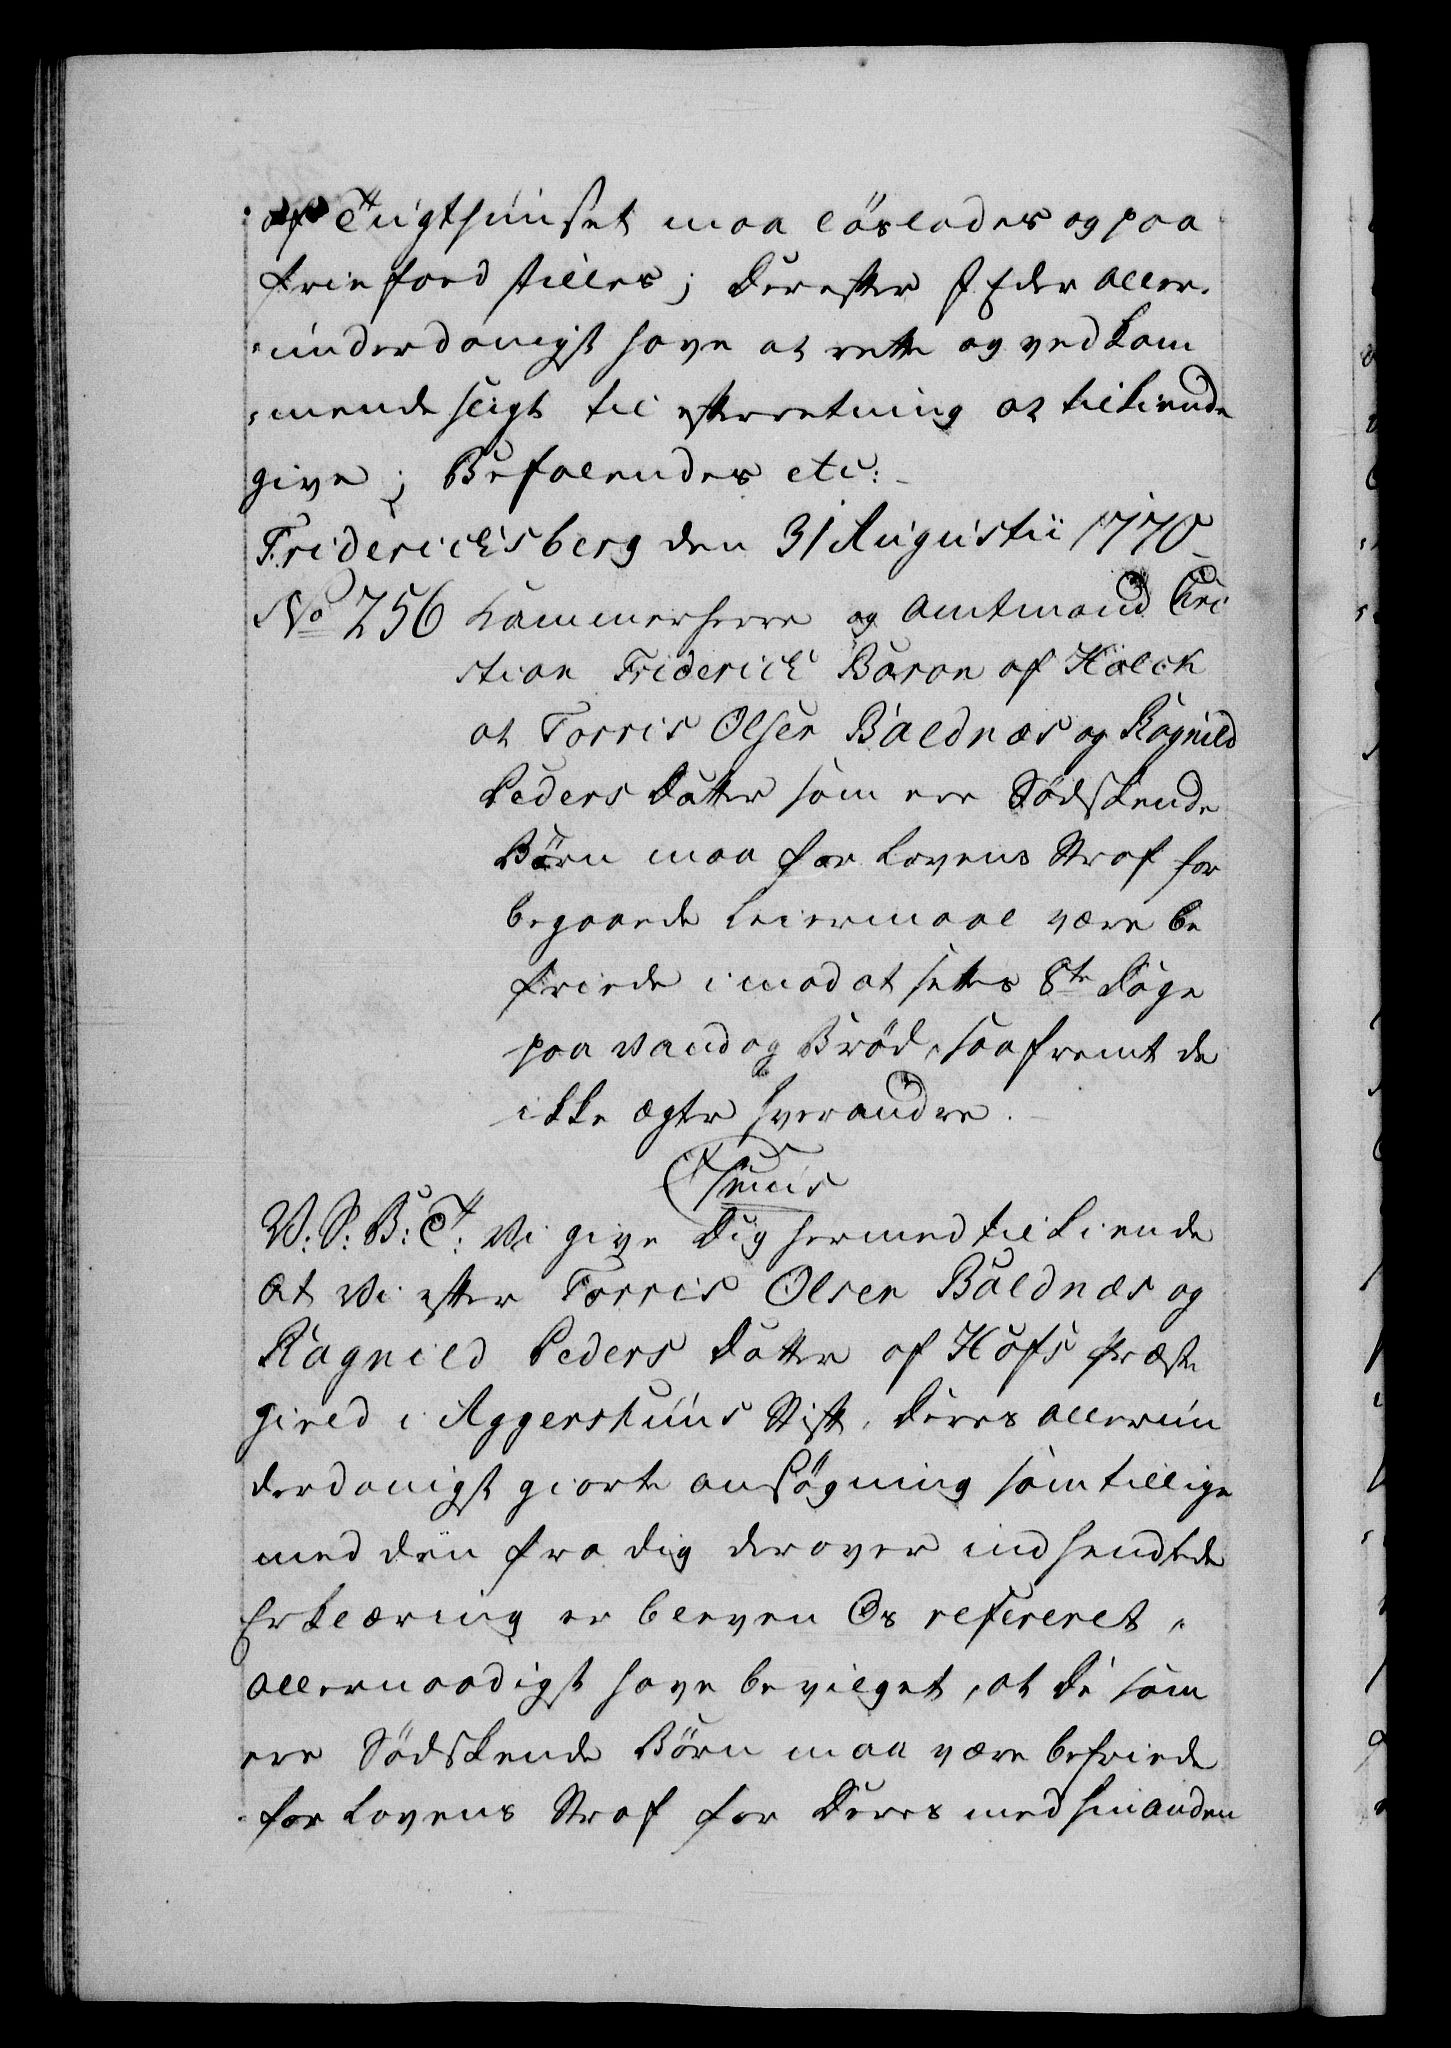 af Tugthuuset maa löslades og paa
friefoed stilles; derefter I Eder aller-
underdanigst have at rette og vedkom
mende sligt til efterretning at tilkiende
give; Befalendes etc:
Friderichsberg den 31 Augustii 1770
No 256 Kammerherre og Amtmand Chri
stian Friderich Baron af Holck
at Torris Olsen Baldnæs og Ragnild
Peders Datter som ere Södskende
Börn maa for Lovens Straf for
begaaede Leiermaal være be
friede imod at settes 8te Dage
paa Vand og Bröd, saafremt de
ikke ægter hverandre.
Tuus
V: S: B: T: Vi give Dig hermed tilkiende
at Vi efter Torris Olsen Baldnæs og
Ragnild Peders Datter af Hofs Præste
gield i Aggershuus Stift, deres allerun
derdanigst giorte ansögning som tillige
med den fra dig derover indsendte
Erklæring er bleven Os refereret,
allernaadigst have bevilget, at de som
ere Södskende Börn maa være befriede
for Lovens Straf for deres med hinanden